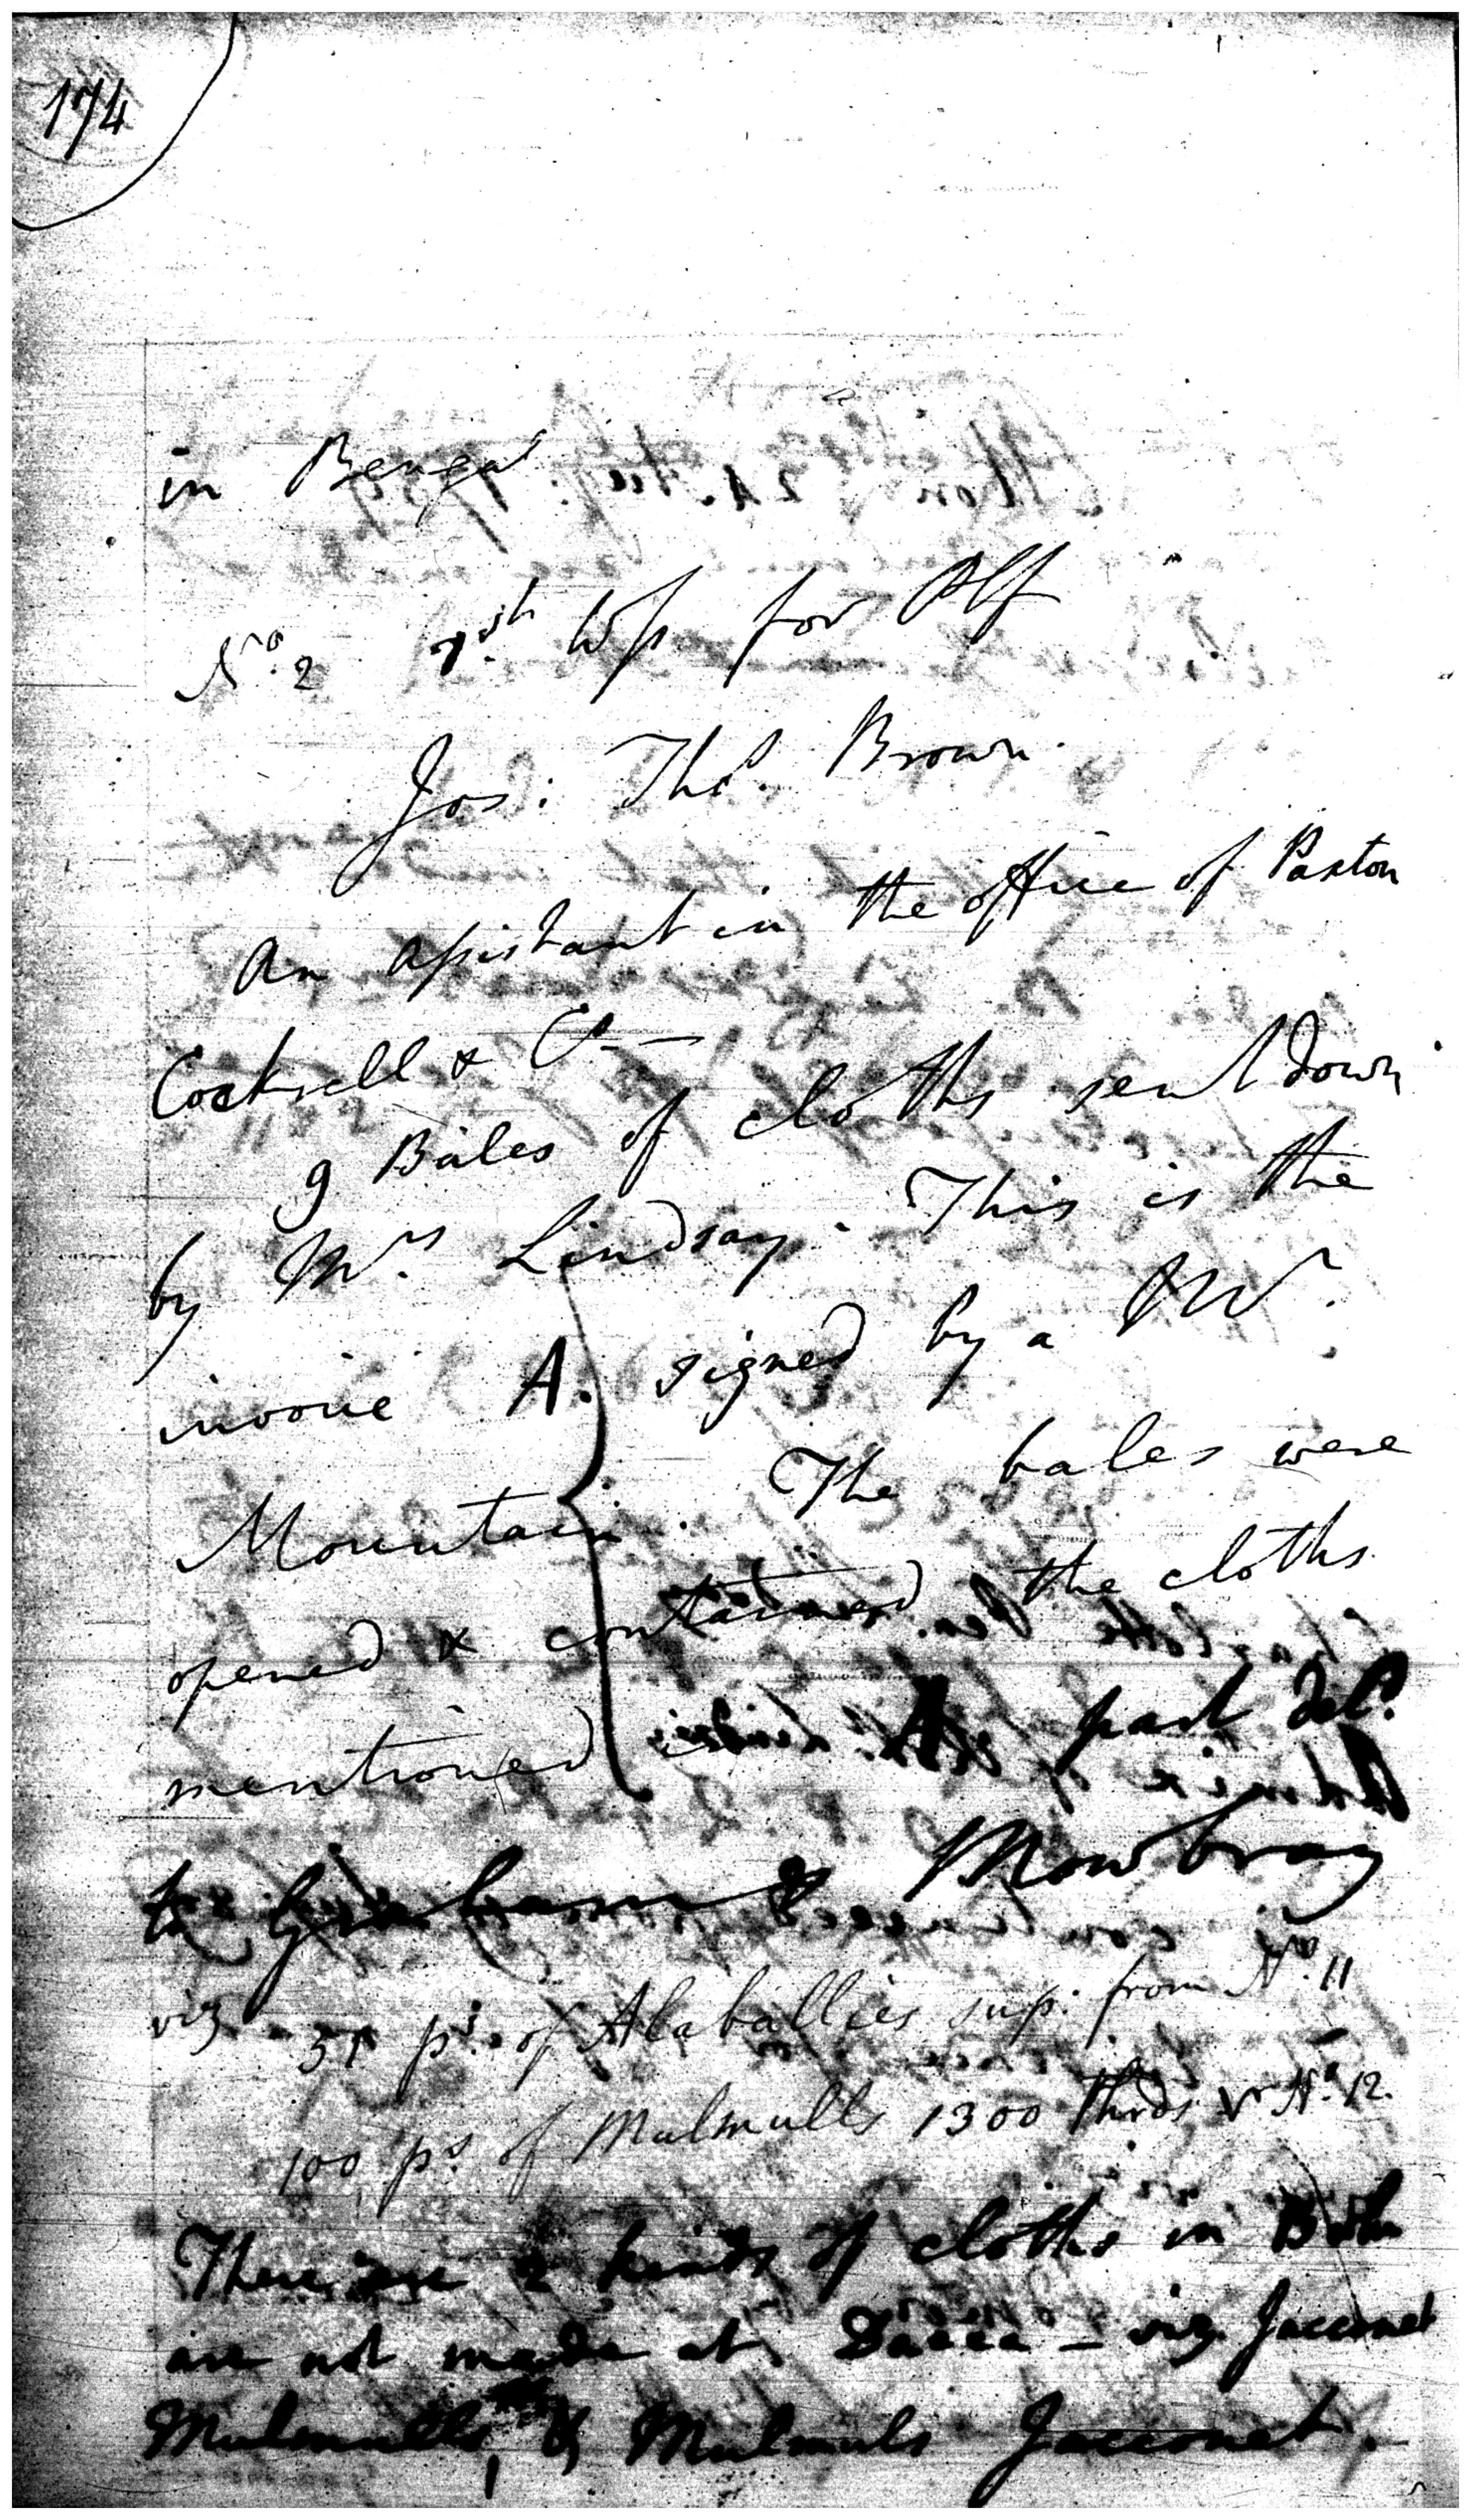 174
in Bengal
No. 2 7th Wss for Plf
Jos: Thos. Brown.
An assistant in the office of Paxton
Cockrell & Co. —
9 Bales of cloths sent down
by Mrs Lindsay. This is the
invoice A. signed by a Mr.
Mountain. The bales were
opened & contained the cloths
mentioned part deld.
to Graham & Mowbray
viz 51 ps. of Alaballies sup. from No. 11
100 ps. of Mulmulls 1300 thrds No. 12.
There are 2 kinds of cloths in
are not made at Dacca — viz. Jacconet
Mulmulls, & Mulmuls Jacconet.